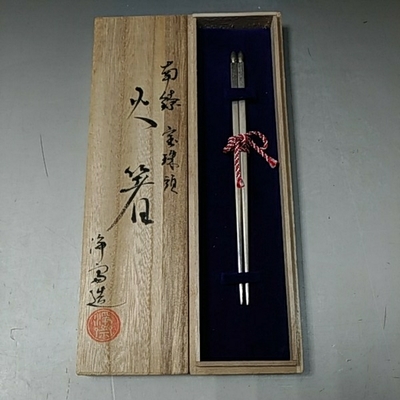 南鐐 宝珠頭
火箸
浄雪造